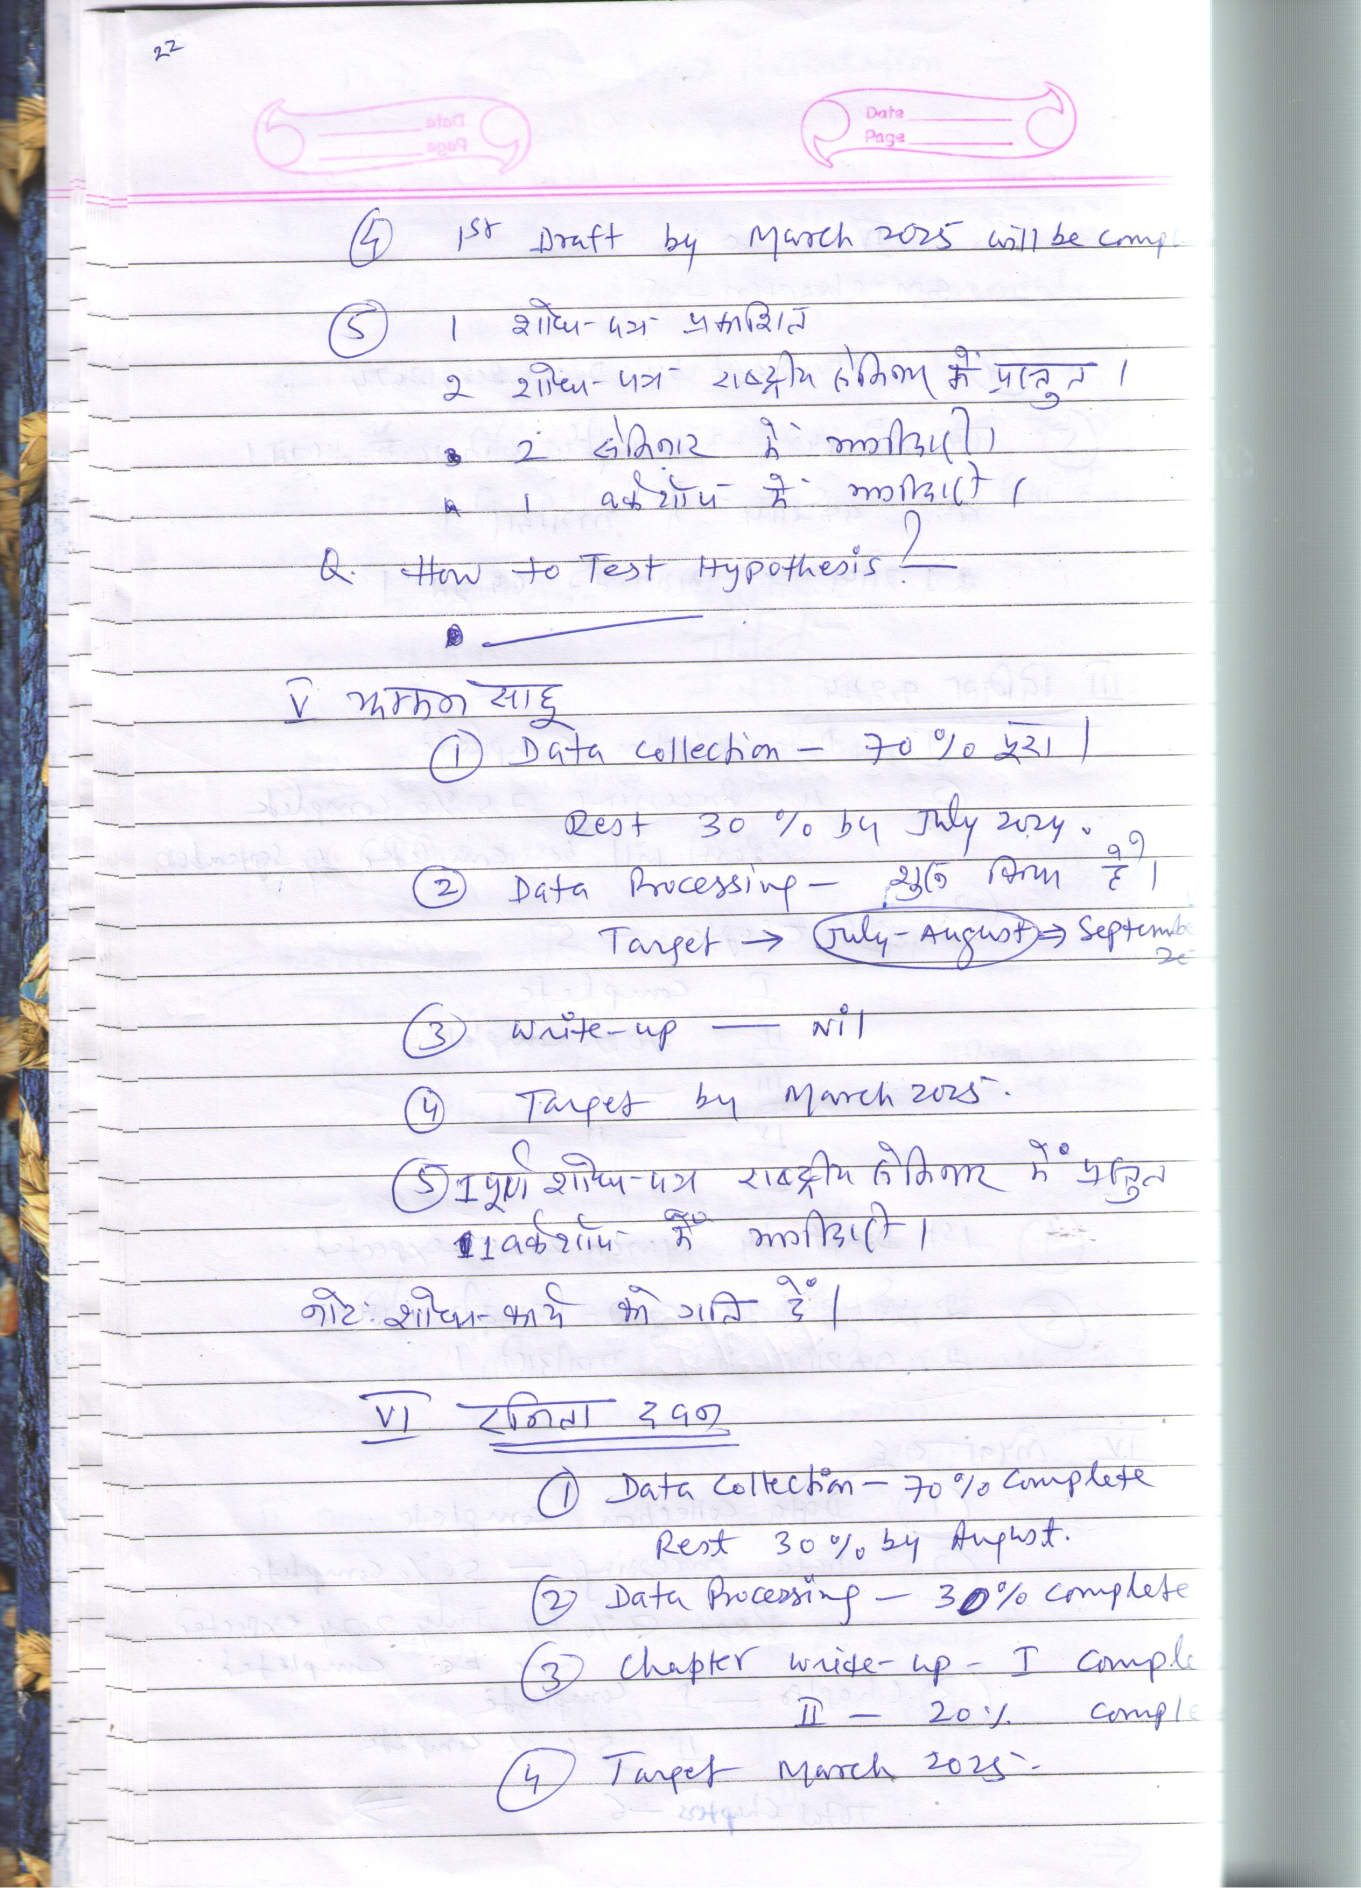 22
Date
Page
④ 1st Draft by March 2025 will be compl
⑤ 1 शोध-पत्र प्रकाशित
2 शोध-पत्र राष्ट्रीय सेमिनार में प्रस्तुत।
3 2 सेमिनार में भागीदारी।
4 1 वर्कशॉप में भागीदारी।
Q. How to Test Hypothesis?
V साहू
① Data Collection – 70% पूरा।
Rest 30% by July 2024.
② Data Processing – शुरू किया है।
Target → July-August ⇒ Septembe
③ Write-up — Nil
④ Target by March 2025.
⑤ 1 पूर्ण शोध-पत्र राष्ट्रीय सेमिनार में प्रस्तुत
1 वर्कशॉप में भागीदारी।
नोट: शोध-कार्य को गति दें।
VI
① Data Collection – 70% complete
Rest 30% by August.
② Data Processing – 30% complete
③ Chapter write-up – I comple
II – 20% comple
④ Target March 2025.